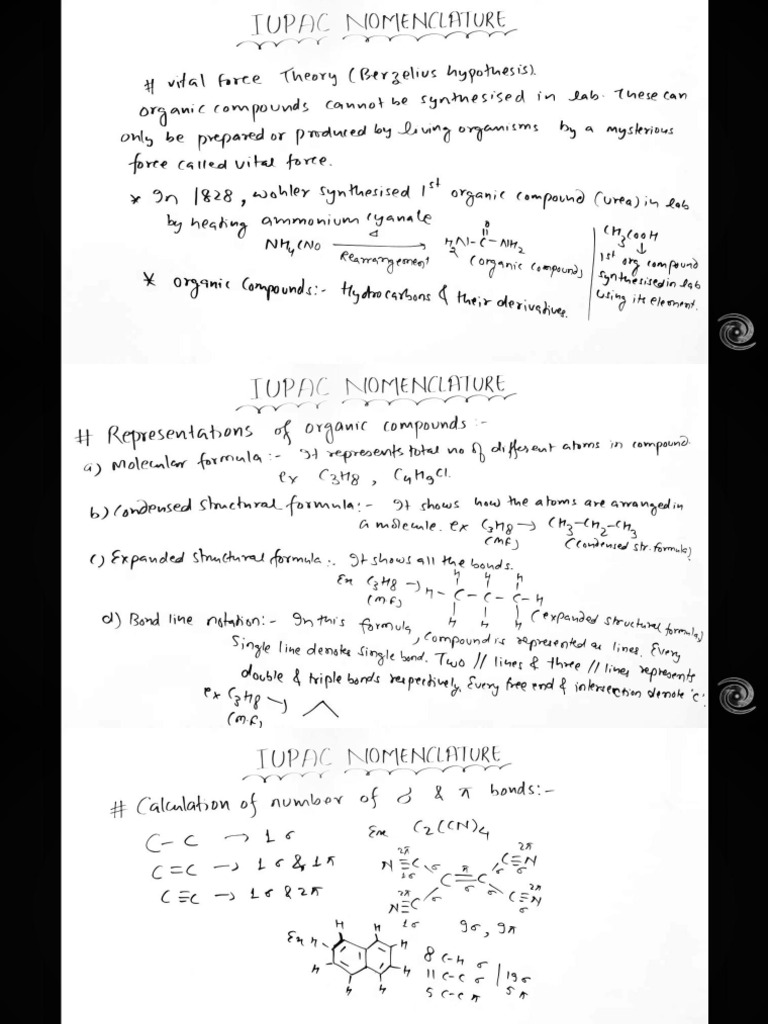 IUPAC NOMENCLATURE
# Vital Force Theory (Berzelius hypothesis).
organic compounds cannot be synthesised in lab. These can
only be prepared or produced by living organisms by a mysterious
force called vital force.
* In 1828, wohler synthesised 1st organic compound (urea) in lab
by heating ammonium cyanate
NH4CNO ⟶ H2N-C-NH2
Δ
O
Rearrangement
(organic compound)
CH3COOH
↓
1st org compound
synthesised in lab
using its element.
* organic compounds:- Hydrocarbons & their derivatives.
IUPAC NOMENCLATURE
# Representations of organic compounds :-
a) Molecular formula :- It represents total no of different atoms in compound
ex C3H8, C4H9Cl.
b) Condensed structural formula:- It shows how the atoms are arranged in
a molecule. ex C3H8 → CH3-CH2-CH3
(M.F) (Condensed str. formula)
c) Expanded structural formula:. It shows all the bonds.
H H H
Ex C3H8 → H-C-C-C-H
(M.F)
H H H (expanded structural formula)
d) Bond line notation:- In this formula, compound is represented as lines. Every
single line denotes single bond. Two // lines & three // lines represents
double & triple bonds respectively. Every free end & intersection denote 'C'.
ex C3H8 →
(M.F)
IUPAC NOMENCLATURE
# Calculation of number of σ & π bonds:-
C-C → 1σ
C=C → 1σ & 1π
C≡C → 1σ & 2π
Ex C2(CN)4
2π 2π
N≡C σ σ C≡N
1σ σ
π
C=C
σ
2π 2π
N≡C σ σ C≡N
1σ σ
9σ, 9π
Ex
H H H
H H
H H H
8 C-H σ
11 C-C σ
5 C-C π
19σ
5π